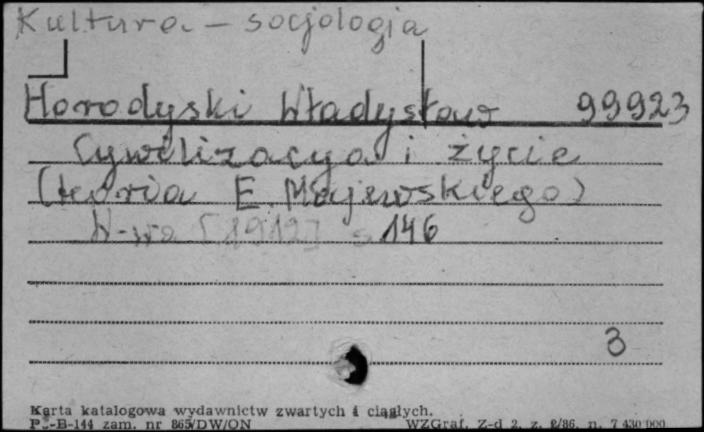 Kultura - socjologia
Horodyski Władysław 99923
Cywilizacya i życie
(teoria E. Majewskiego)
W-wa [1912] s 146
3
Karta katalogowa wydawnictw zwartych i ciągłych.
Pu-B-144 zam. nr 865/DW/ON WZGraf. Z-d 2, z. 2/86, n. 7 430 000